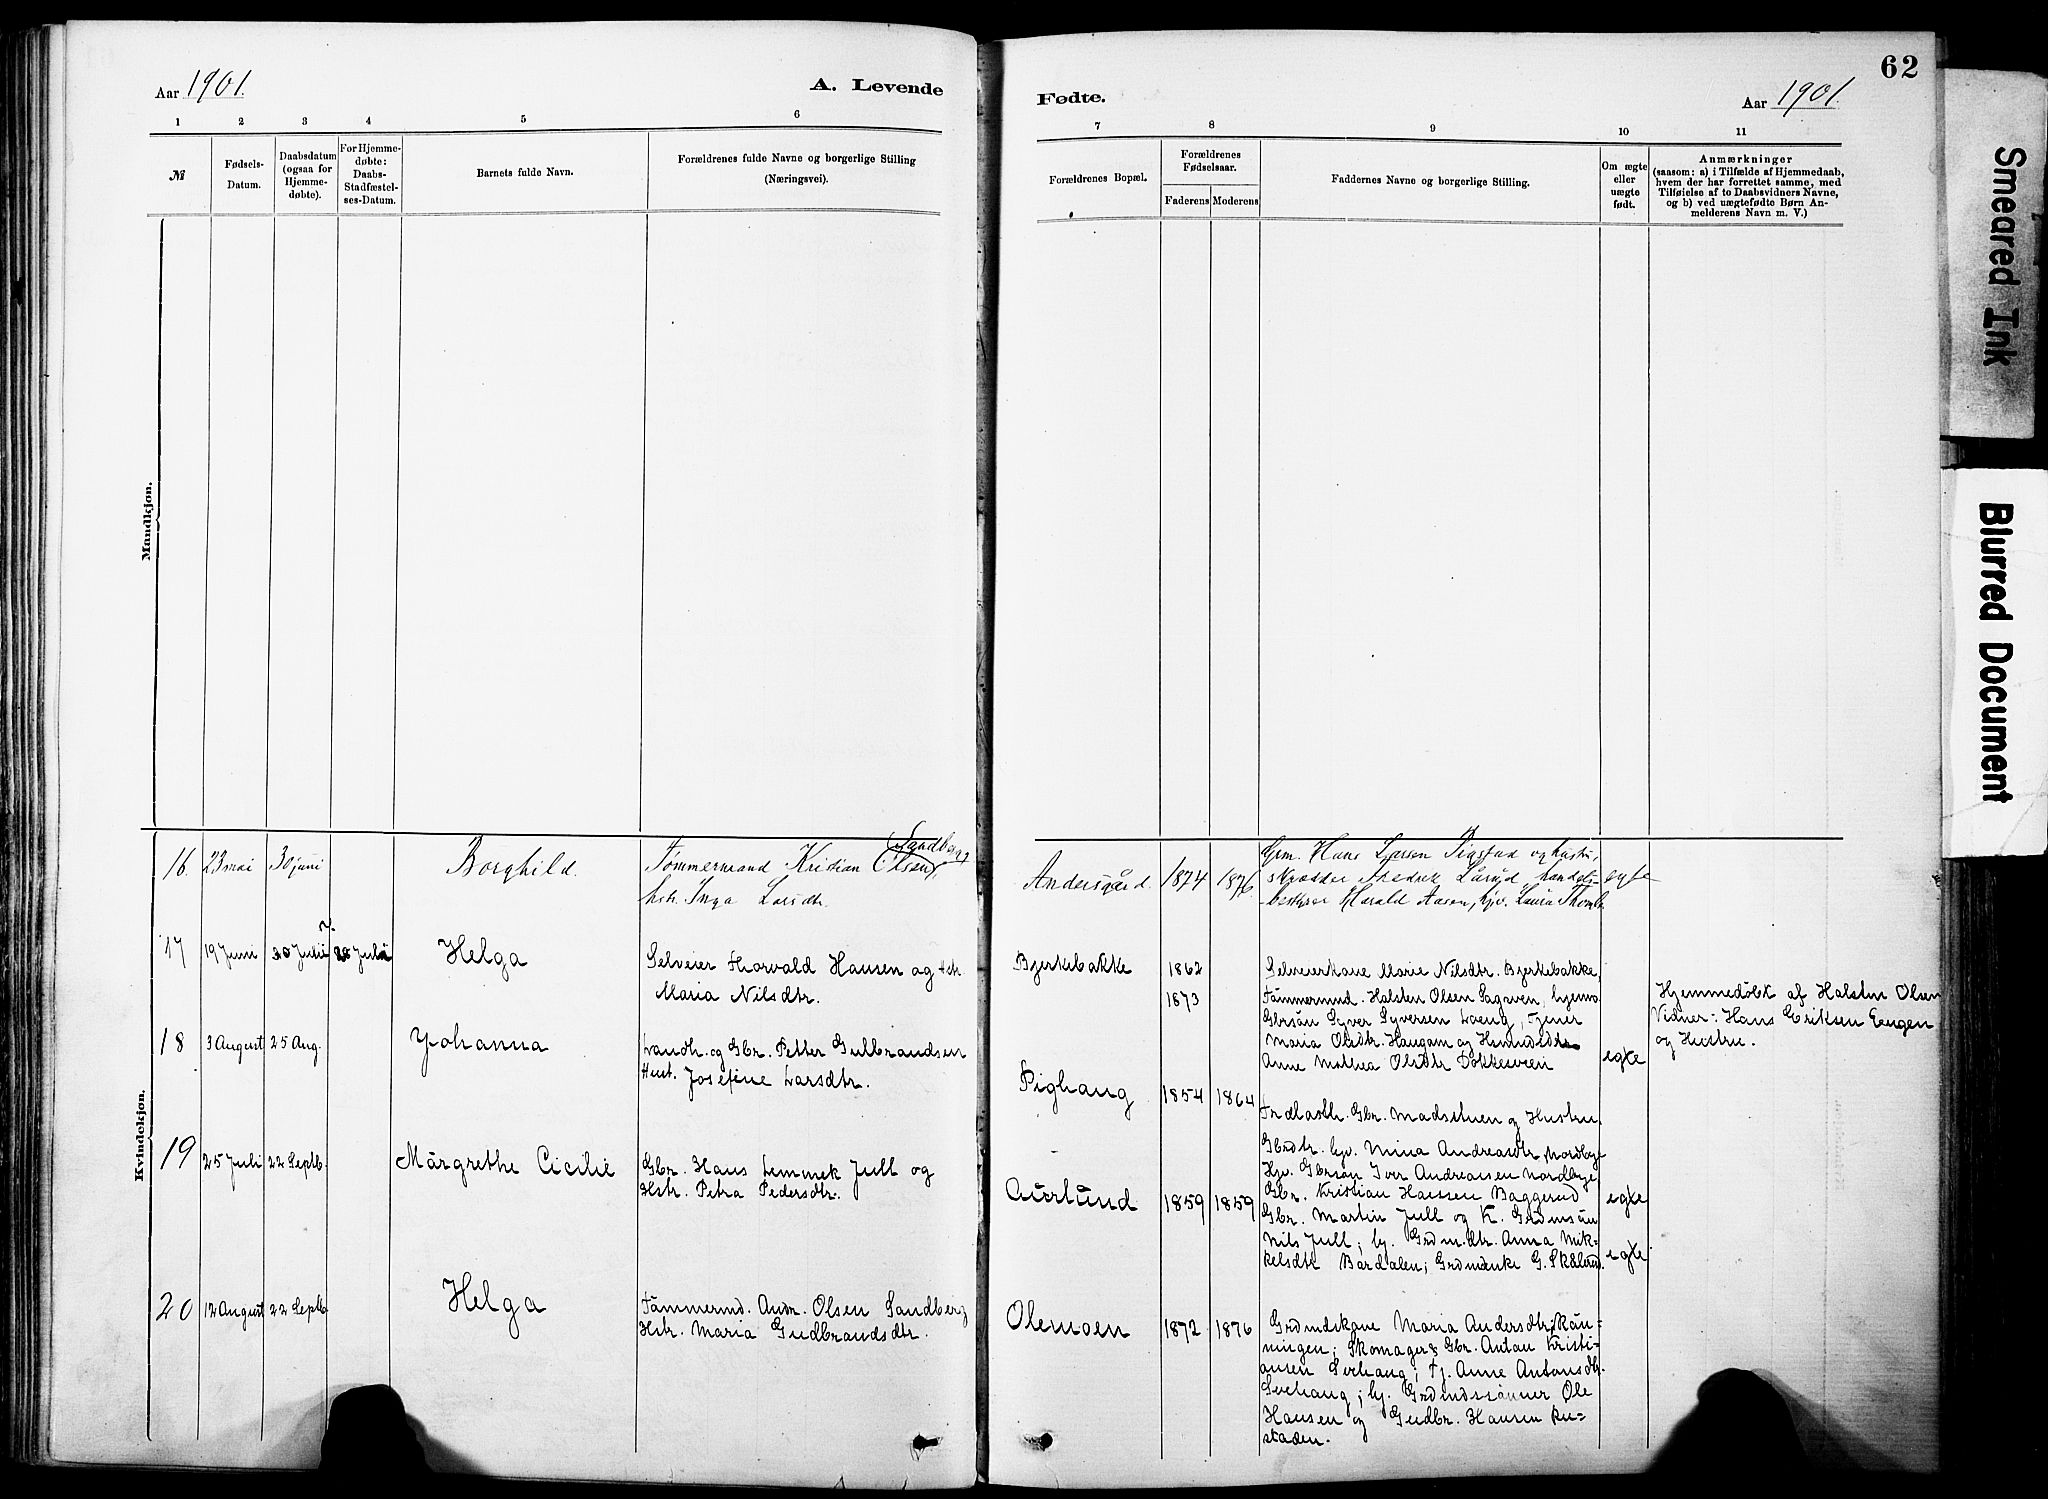 Aar 1901.
A. Levende
Fødte.
Aar 1901.
62
1 2 3 4 5 6 7 8 9 10 11
№
Fødsels-
Datum.
Daabsdatum
(ogsaa for
Hjemme-
døbte).
For Hjemme-
døbte:
Daabs-
Stadfæstel-
ses-Datum.
Barnets fulde Navn.
Forældrenes fulde Navne og borgerlige Stilling
(Næringsvei).
Forældrenes Bopæl.
Forældrenes
Fødselsaar.
Faderens Moderens
Faddernes Navne og borgerlige Stilling.
Om ægte
eller
uægte
født.
Anmærkninger
(saasom: a) i Tilfælde af Hjemmedaab,
hvem der har forrettet samme, med
Tilføielse af to Daabsvidners Navne,
og b) ved uægtefødte Børn An-
melderens Navn m. V.)
Mandkjøn.
Kvindekjøn.
16. 23 mai 30 juni Borghild.
Sandberg
Tømmermand Kristian Olsen,
hstr. Inga Larsdtr.
Andersgård. 1874 1876.
Grm. Hans Larsen Pigstad og hustr.,
skrædder Fredrik Lårud, handels-
bestyrer Harald Aasen, pjv. Laura Thomle
egte
17 19 Juni 20 Juli 28 Juli Helga
Selveier Thorvald Hansen og Hstr.
Maria Nilsdtr.
Bjerkebakke 1862
1873
Selveierkone Marie Nilsdtr. Bjerkebakke,
Tømmermnd. Halsten Olsen Sagveen,
Gbrsön Syver Syversen Loeng, Tjener
Maria Olsdtr. Haugam og
Anne Mathea Olsdtr Dokkesveen
egte
Hjemmedöbt af Halsten Olsen
Vidner: Hans Eriksen Engen
og Hustru.
18 3 August 25 Aug. Johanna
Landh. og Gbr. Petter Gulbrandsen
Hust. Josefine Larsdtr.
Pighaug 1854 1864
Gbr. Madsstuen og Hustru,
Gbrdtr. Nina Andreasdtr. Nordbye
Gbrsön Iver Andreassen Nordbye
egte
19 25 Juli 22 Septb. Margrethe Cicilie
Gbr. Hans Lemmek Jull og
Hstr. Petra Pedersdtr.
Aurlund 1859 1859
Gbr. Kristian Hansen Baggerud
Gbr. Martin Jull og K. Grdmsön
Nils Jull; Grdm.dtr. Anna Mik-
kelsdtr Bardalen; Grdmenke G. Skålerud.
egte
20 12 August 22 Septb Helga
Tömmermd. Andr. Olsen Sandberg
Hstr. Maria Gudbrandsdtr.
Olemoen 1872 1876
Grdmdskone Maria Andersdtr. Kön-
ningen; Skomager & Gbr. Anton Kristi-
ansen Sverhaug; Tj. Anne Antonsdtr.
Sverhaug; Grdmdssønner Ole
Hansen og Gudbr. Hansen Ru-
staden.
Smeared Ink
Blurred Document